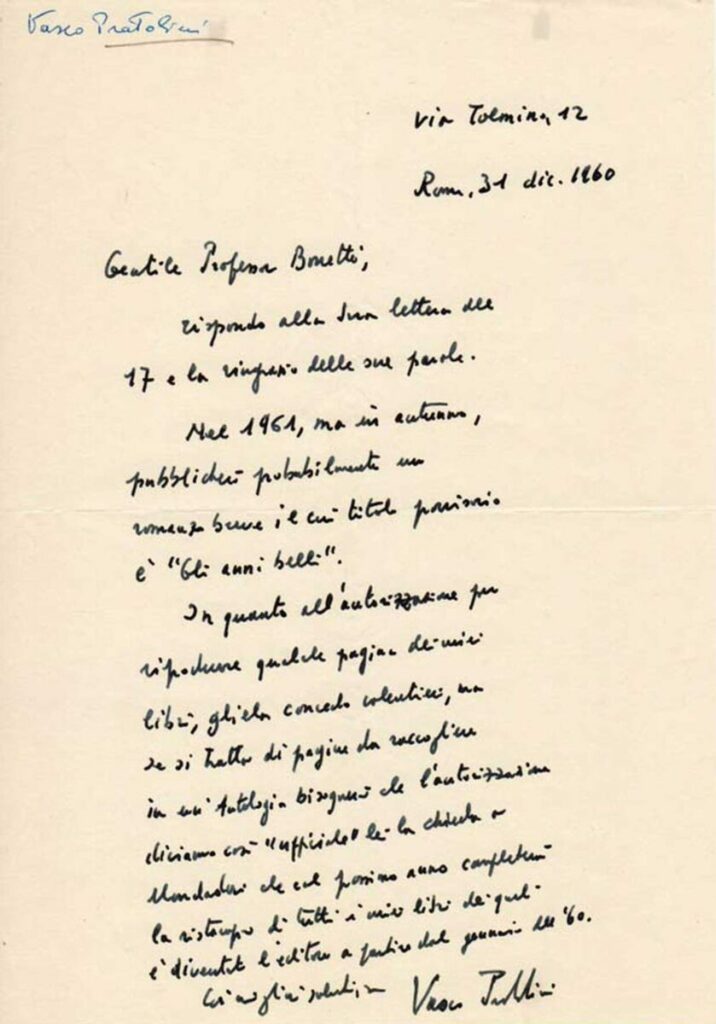 Vasco Pratolini
Via Tolmino, 12
Roma, 31 dic. 1960
Gentile Professor Bonetti,
rispondo alla Sua lettera del
17 e la ringrazio delle sue parole.
Nel 1961, ma in autunno,
pubblicherò probabilmente un
romanzo breve il cui titolo provvisorio
è "Gli anni belli".
In quanto all'autorizzazione per
riprodurre qualche pagina dei miei
libri, gliela concedo volentieri, ma
se si tratta di pagine da raccogliere
in un'Antologia bisognerà che l'autorizzazione
diciamo così "ufficiale" lei la chieda a
Mondadori che col prossimo anno completerà
la ristampa di tutti i miei libri dei quali
è diventato l'editore a partire dal gennaio del '60.
Coi migliori saluti, suo
Vasco Pratolini